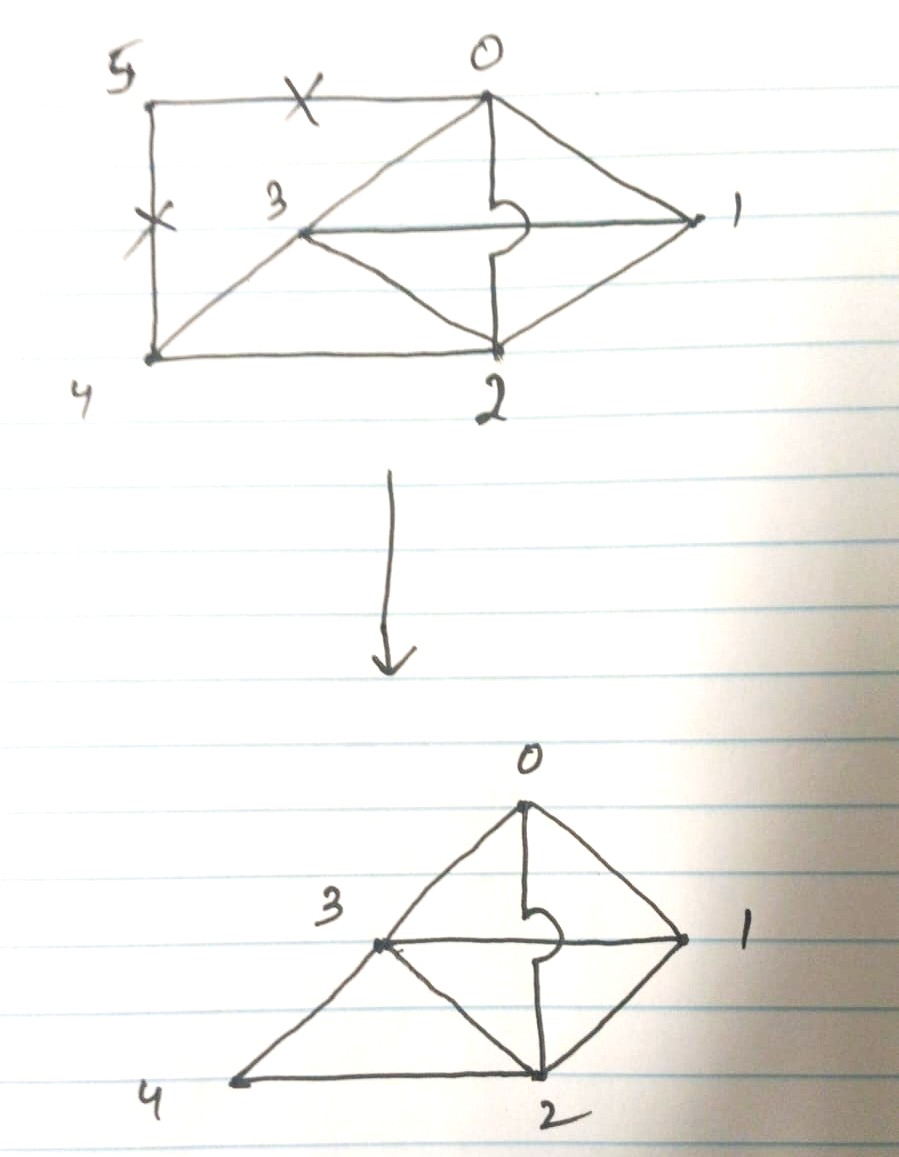 5 0
3 1
4 2
0
3 1
4 2